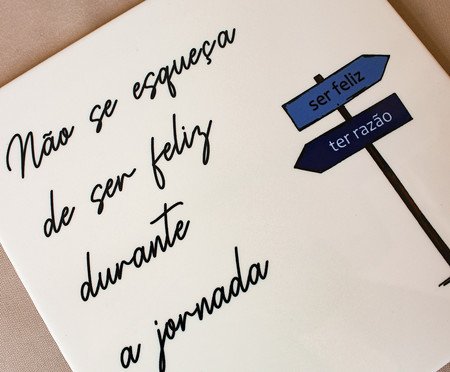 Não se esqueça
de ser feliz
durante
a jornada
ser feliz
ter razão